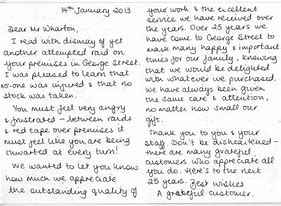 14th January 2013
Dear Mr Wharton,
I read with dismay of yet
another attempted raid on
your premises in George Street.
I was pleased to learn that
no-one was injured & that no
stock was taken.
You must feel very angry
& frustrated - between raids
& red tape over premises it
must feel like you are being
thwarted at every turn!
We wanted to let you know
how much we appreciate
the outstanding quality of
your work & the excellent
service we have received over
the years. Over 25 years we
have come to George Street to
mark many happy & important
times for our family, knowing
that we would be delighted
with whatever we purchased.
We have always been given
the same care & attention,
no matter how small our
gift.
Thank you to you & your
staff. Don't be disheartened -
there are many grateful
customers who appreciate all
you do. Here's to the next
25 years. Best wishes
A grateful customer.